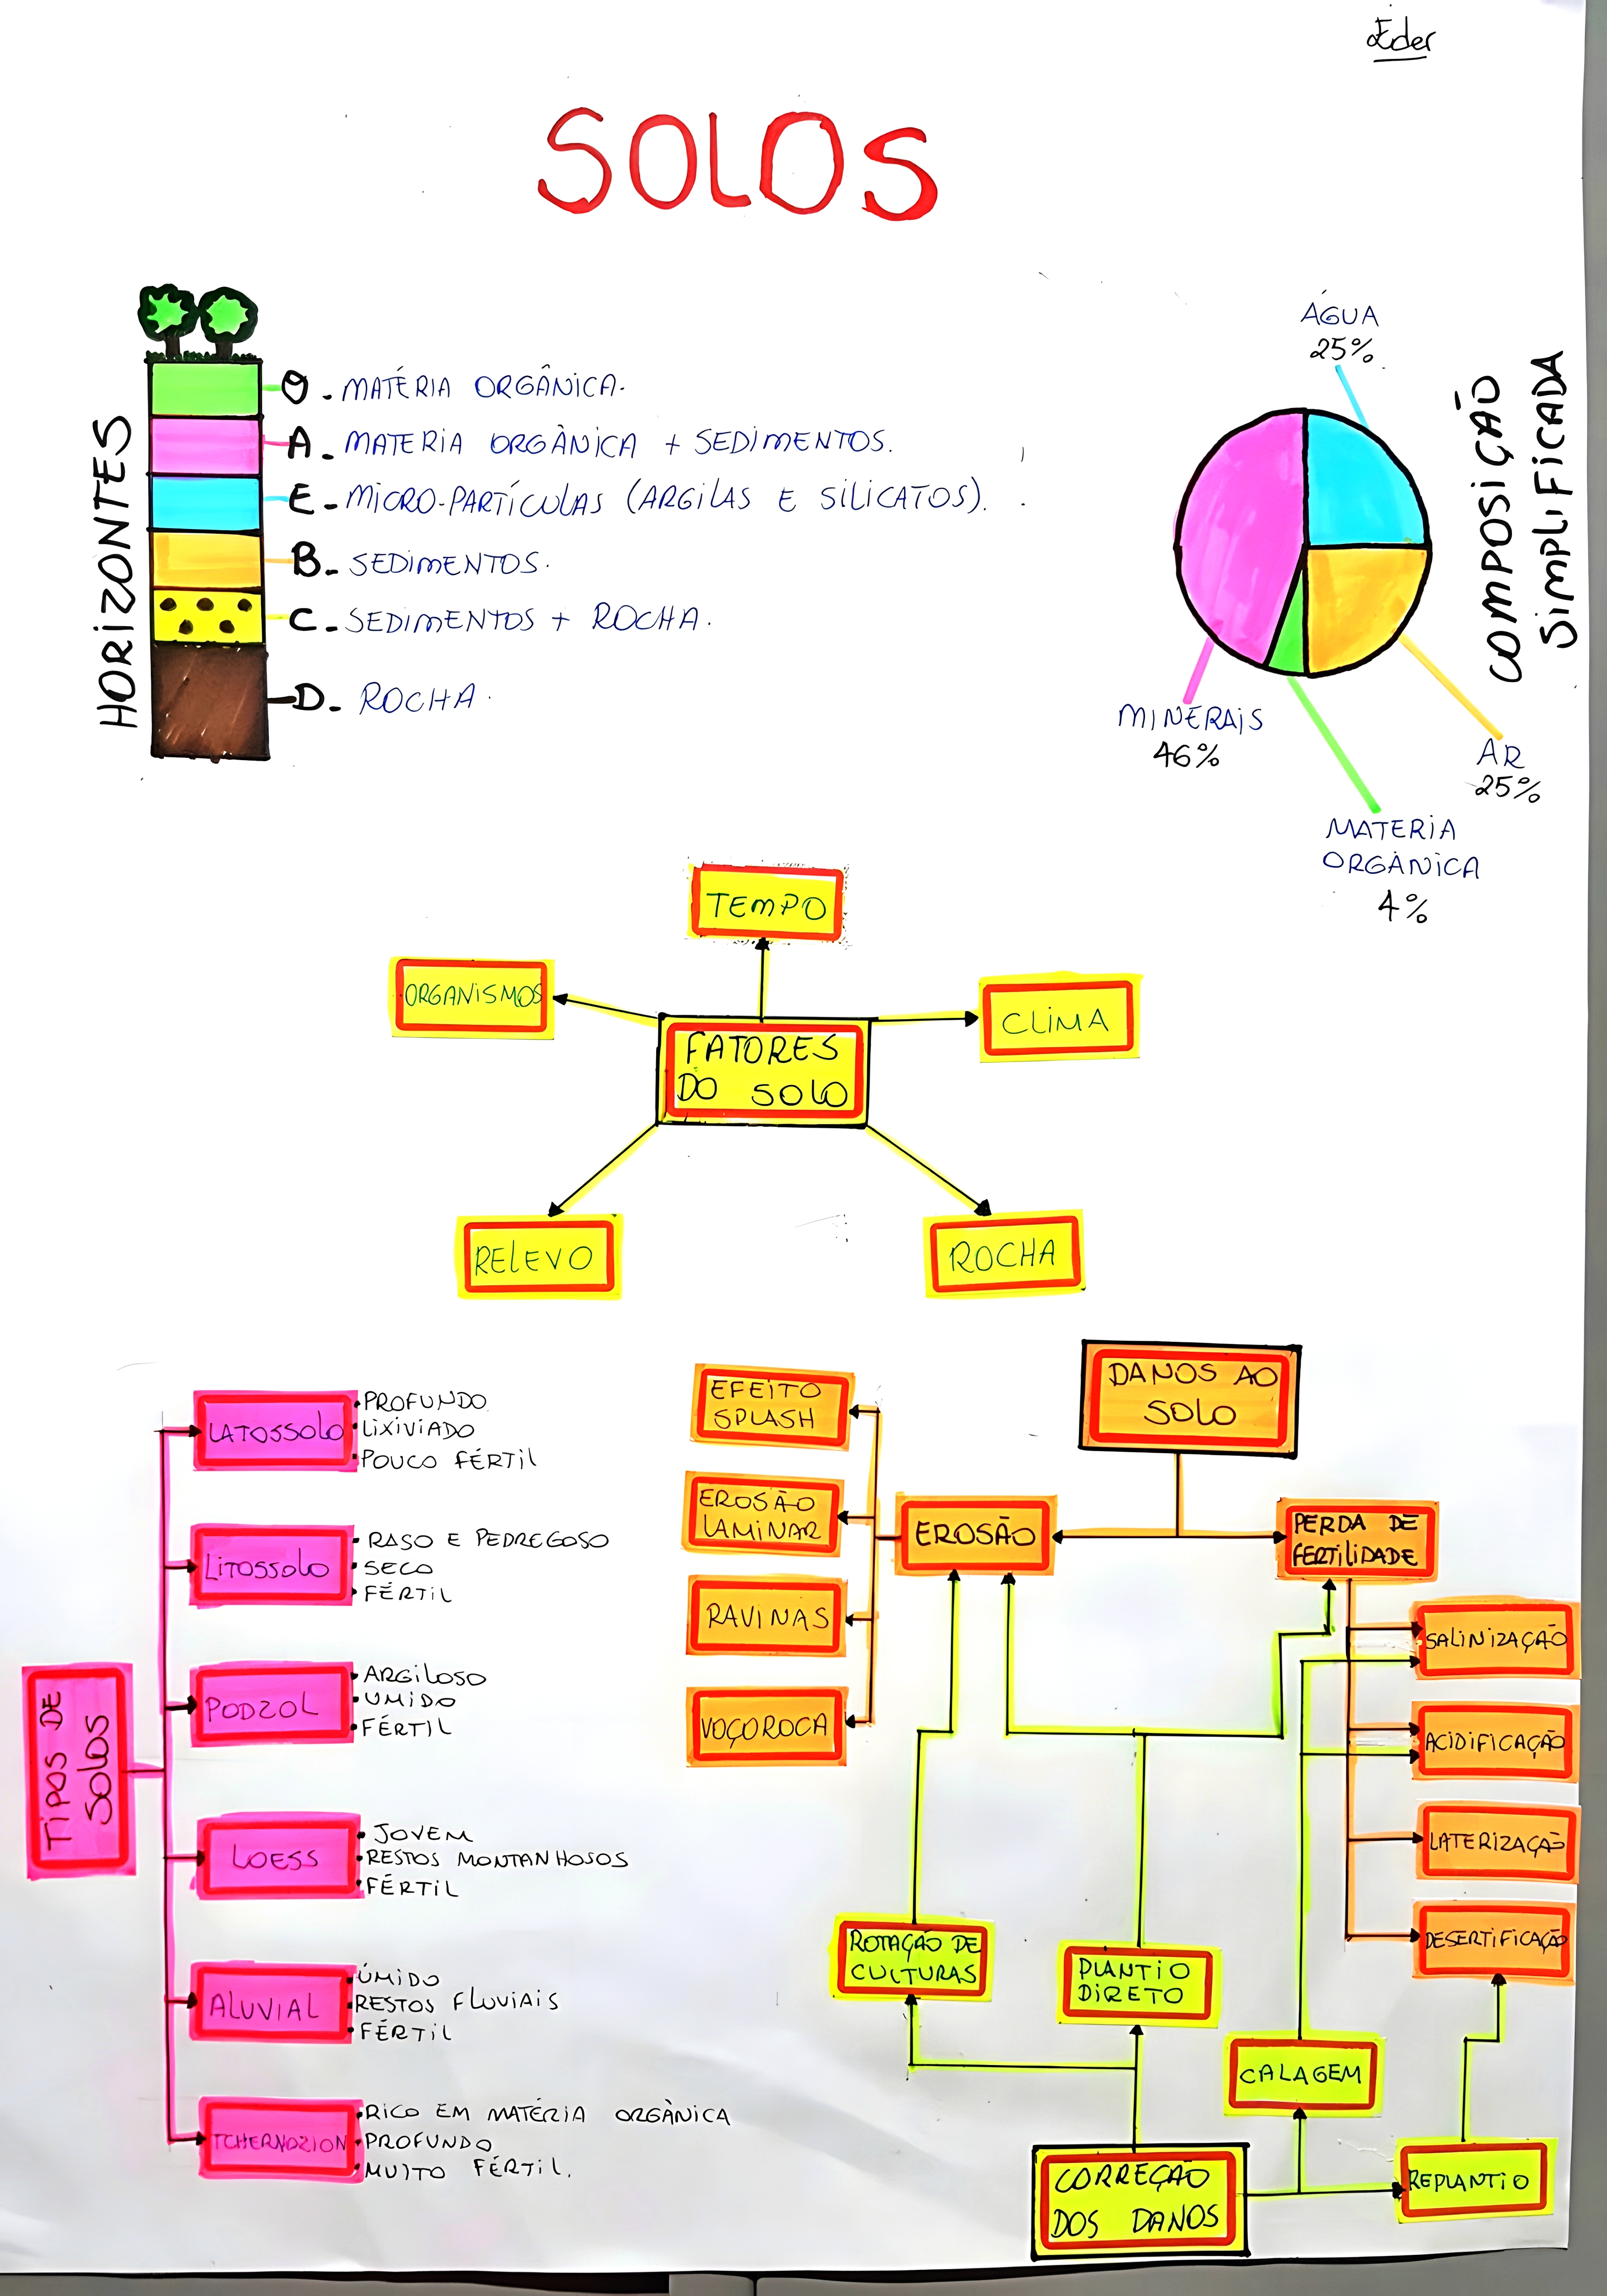 Eder
SOLOS
HORIZONTES
O - MATÉRIA ORGÂNICA.
A - MATERIA ORGÂNICA + SEDIMENTOS.
E - MICRO-PARTÍCULAS (ARGILAS E SILICATOS).
B - SEDIMENTOS.
C - SEDIMENTOS + ROCHA.
D - ROCHA.
COMPOSIÇÃO
SIMPLIFICADA
ÁGUA
25%
MINERAIS
46%
AR
25%
MATERIA
ORGÂNICA
4%
TEMPO
ORGANISMOS
CLIMA
FATORES
DO SOLO
RELEVO
ROCHA
TIPOS DE
SOLOS
LATOSSOLO
• PROFUNDO
• LIXIVIADO
• POUCO FÉRTIL
LITOSSOLO
• RASO E PEDREGOSO
• SECO
• FÉRTIL
PODZOL
• ARGILOSO
• UMIDO
• FÉRTIL
LOESS
• JOVEM
• RESTOS MONTANHOSOS
• FÉRTIL
ALUVIAL
• ÚMIDO
• RESTOS FLUVIAIS
• FÉRTIL
TCHERNOZION
• RICO EM MATÉRIA ORGÂNICA
• PROFUNDO
• MUITO FÉRTIL.
DANOS AO
SOLO
EFEITO
SPLASH
EROSÃO
LAMINAR
RAVINAS
VOÇOROCA
EROSÃO
PERDA DE
FERTILIDADE
SALINIZAÇÃO
ACIDIFICAÇÃO
LATERIZAÇÃO
DESERTIFICAÇÃO
ROTAÇÃO DE
CULTURAS
PLANTIO
DIRETO
CALAGEM
REPLANTIO
CORREÇÃO
DOS DANOS